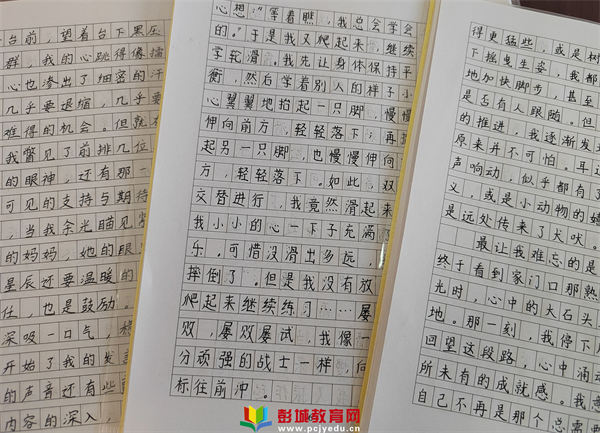 台前，望着台下黑压
群，我的心跳得像擂
心也渗出了细密的汗
几乎要退缩，几乎要
难得的机会。但就在
我瞥见了前排几位
的眼神，还有那一
可见的支持与期待
，当我余光瞄见
的妈妈，她的眼
星辰还要温暖的
任，也是鼓励。
深吸一口气，
开始了我的发
的声音还有些
内容的深入，
心想："等着瞧，我总会学会
的。"于是我又爬起来，继续
学轮滑。我先让身体保持平
衡，然后学着别人的样子小
心翼翼地抬起一只脚，慢慢
伸向前方，轻轻落下；再
起另一只脚，也慢慢伸向
方，轻轻落下。如此，双
交替进行，我竟然滑起来
我小小的心一下子充满了
乐，可惜没滑出多远，
摔倒了。但是我没有放
爬起来继续练习……屡
败，屡败屡试，我像一
分顽强的战士一样，向
标往前冲。
得更猛些，或是树
下摇曳生姿，我都
地加快脚步，甚至
是否有人跟随。但
的推进，我逐渐发
原来并不可怕。耳
声响动，似乎都有了
义，或是小动物的
是远处传来了犬吠。
最让我难忘的是
终于看到家门口那熟
光时，心中的大石头
地。那一刻，我停下
回望这段路，心中涌
所未有的成就感。我
自己不再是那个总需要
彭城教育网
www.pcjyedu.cn